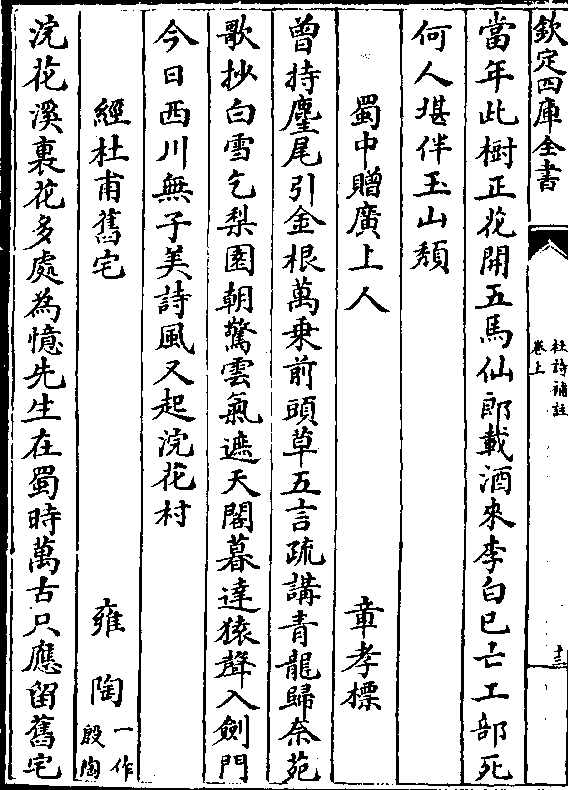 欽定四庫全書
杜詩補註
卷上
十三
當年此樹正花開五馬仙郎載酒來李白已亡工部死
何人堪伴玉山頹
蜀中贈廣上人 章孝標
曾持麈尾引金根萬乘前頭草五言疏講青龍歸柰苑
歌抄白雪乞梨園朝驚雲氣遮天閣暮逹猿聲入劍門
今日西川無子美詩風又起浣花村
經杜甫舊宅 雍陶一作殷陶
浣花溪裏花多處為憶先生在蜀時萬古只應留舊宅